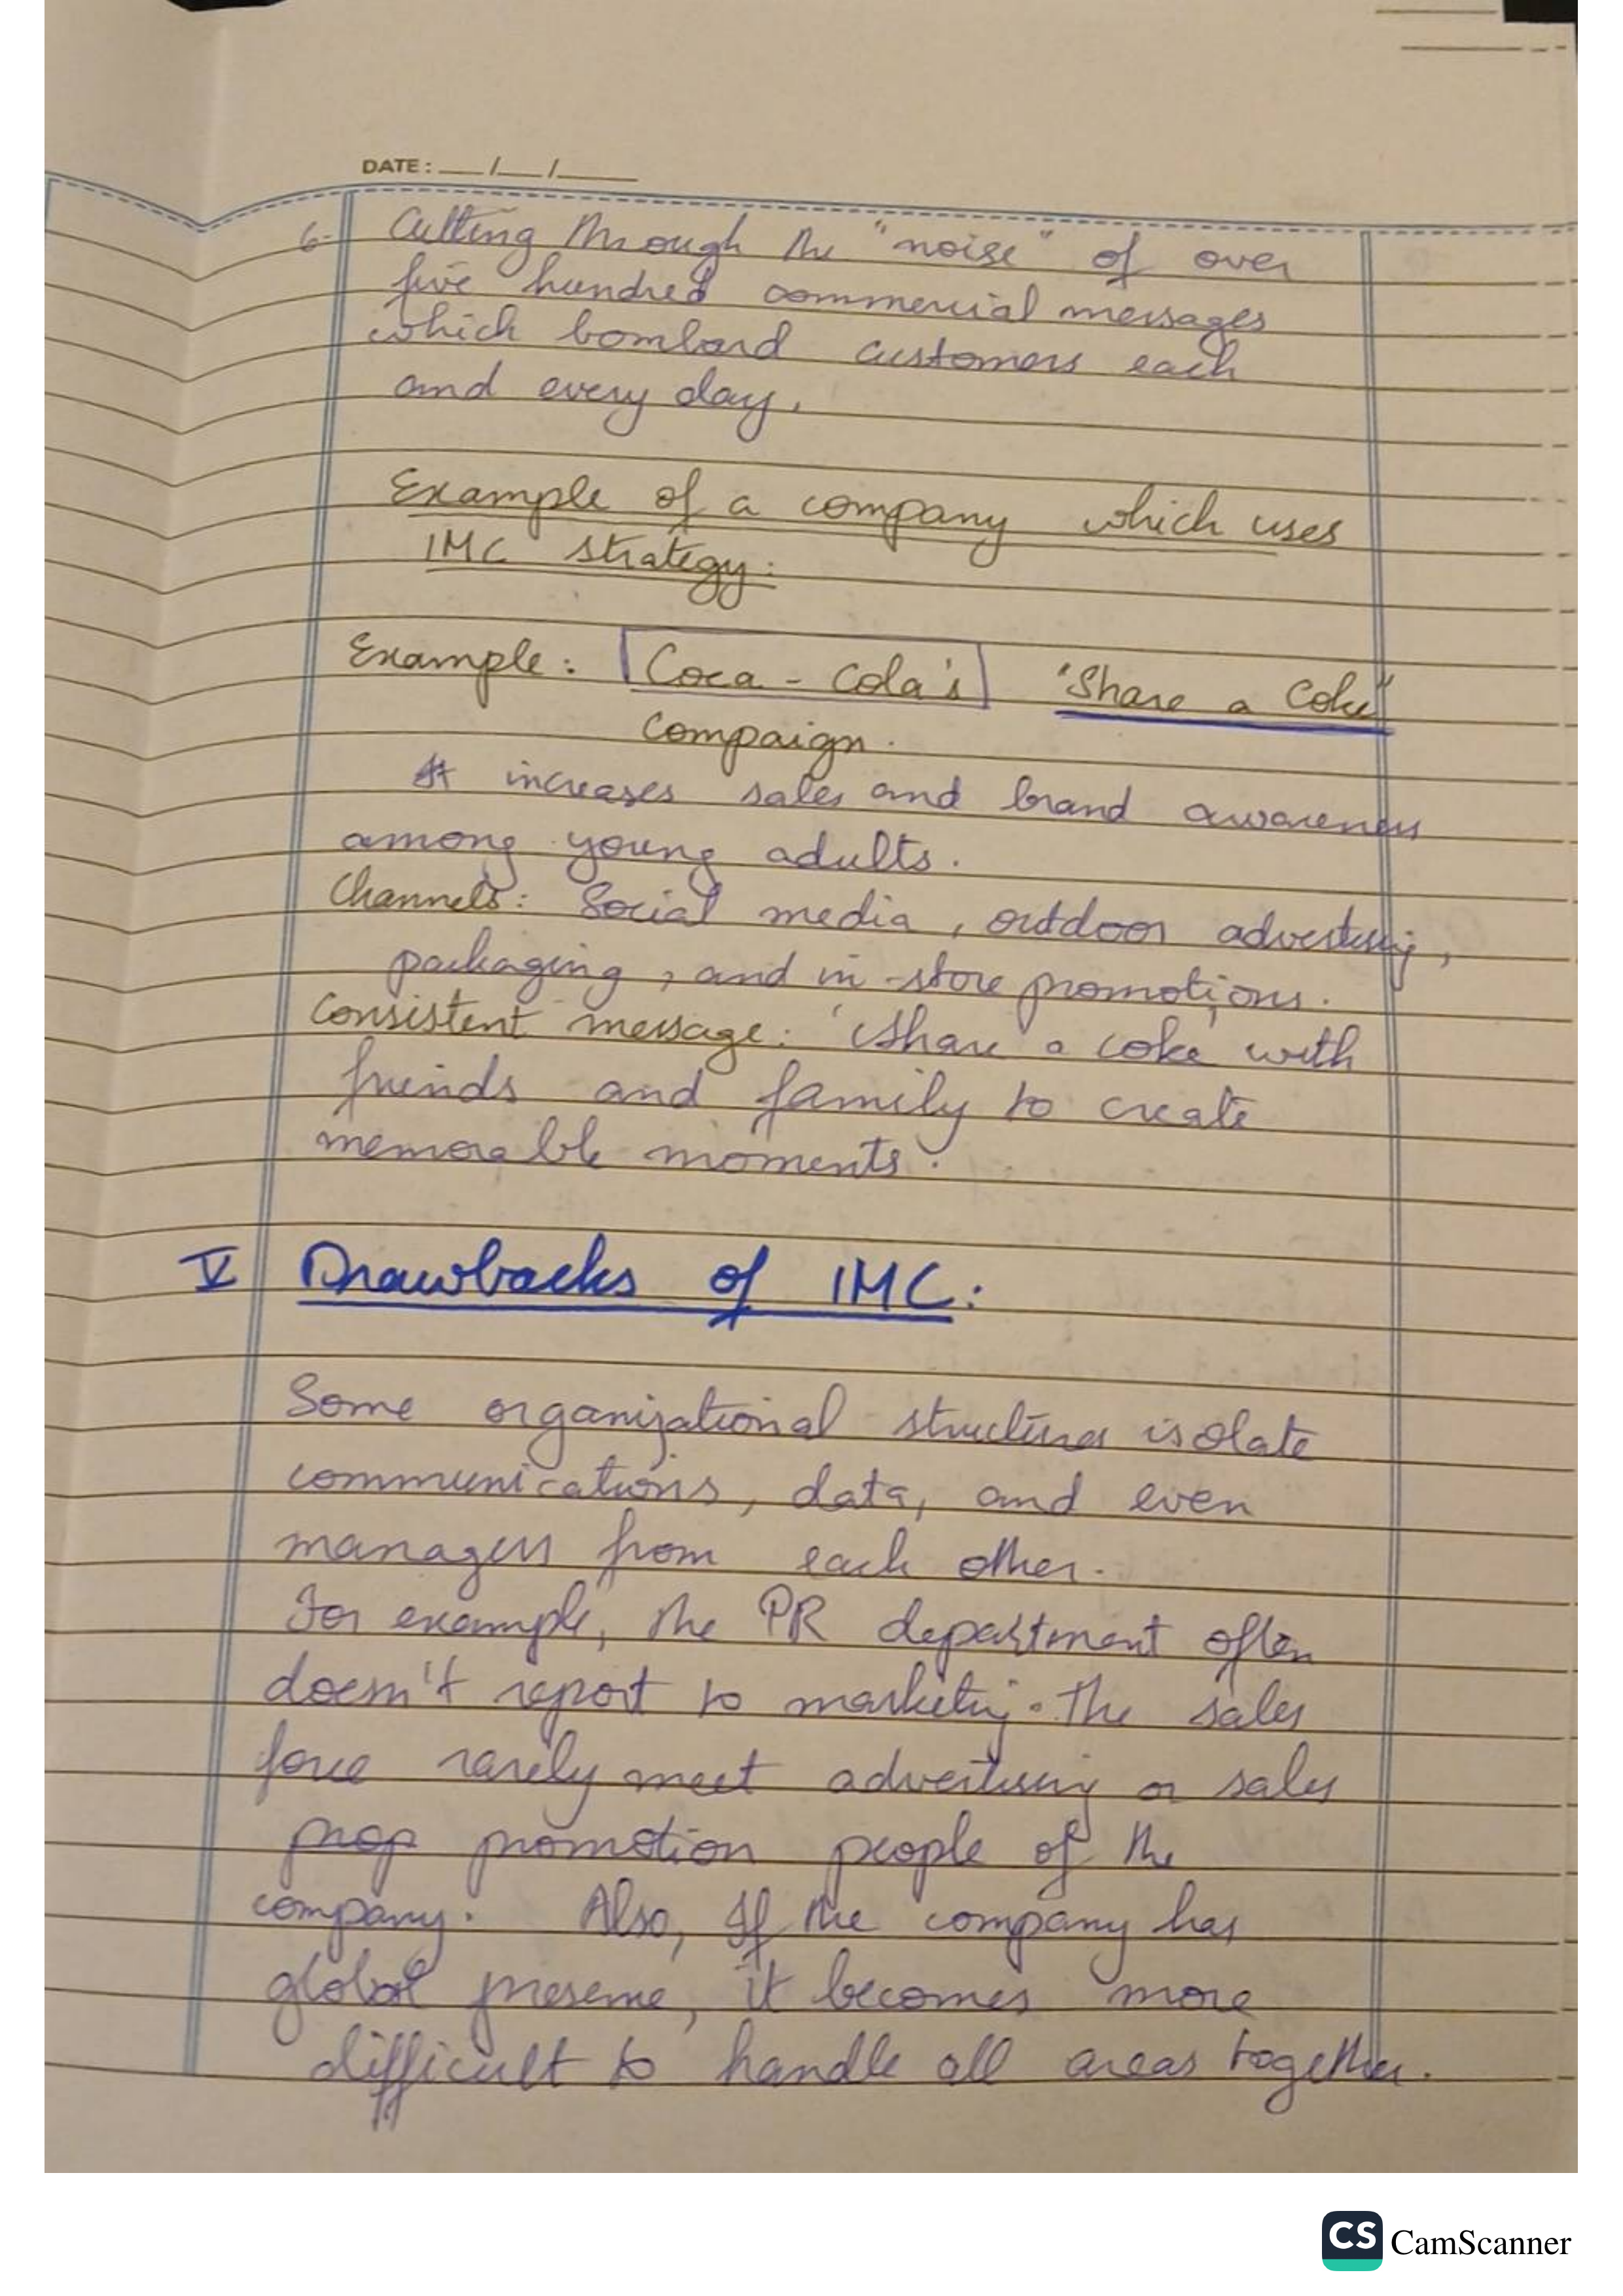 DATE: __/__/____
6- Cutting through the "noise" of over
five hundred commercial messages
which bombard customers each
and every day.
Example of a company which uses
IMC strategy:
Example: Coca-Cola's "Share a Coke"
Compaign.
It increases sales and brand awareness
among young adults.
Channels: Social media, outdoor advertising,
packaging, and in-store promotions.
Consistent message: 'Share a coke' with
friends and family to create
memorable moments.
V Drawbacks of IMC:
Some organizational structures isolate
communications, data, and even
managers from each other.
For example, the PR department often
doesn't report to marketing. The sales
force rarely meet advertising or sales
prop promotion people of the
company. Also, If the company has
global presence, it becomes more
difficult to handle all areas together.
CS CamScanner